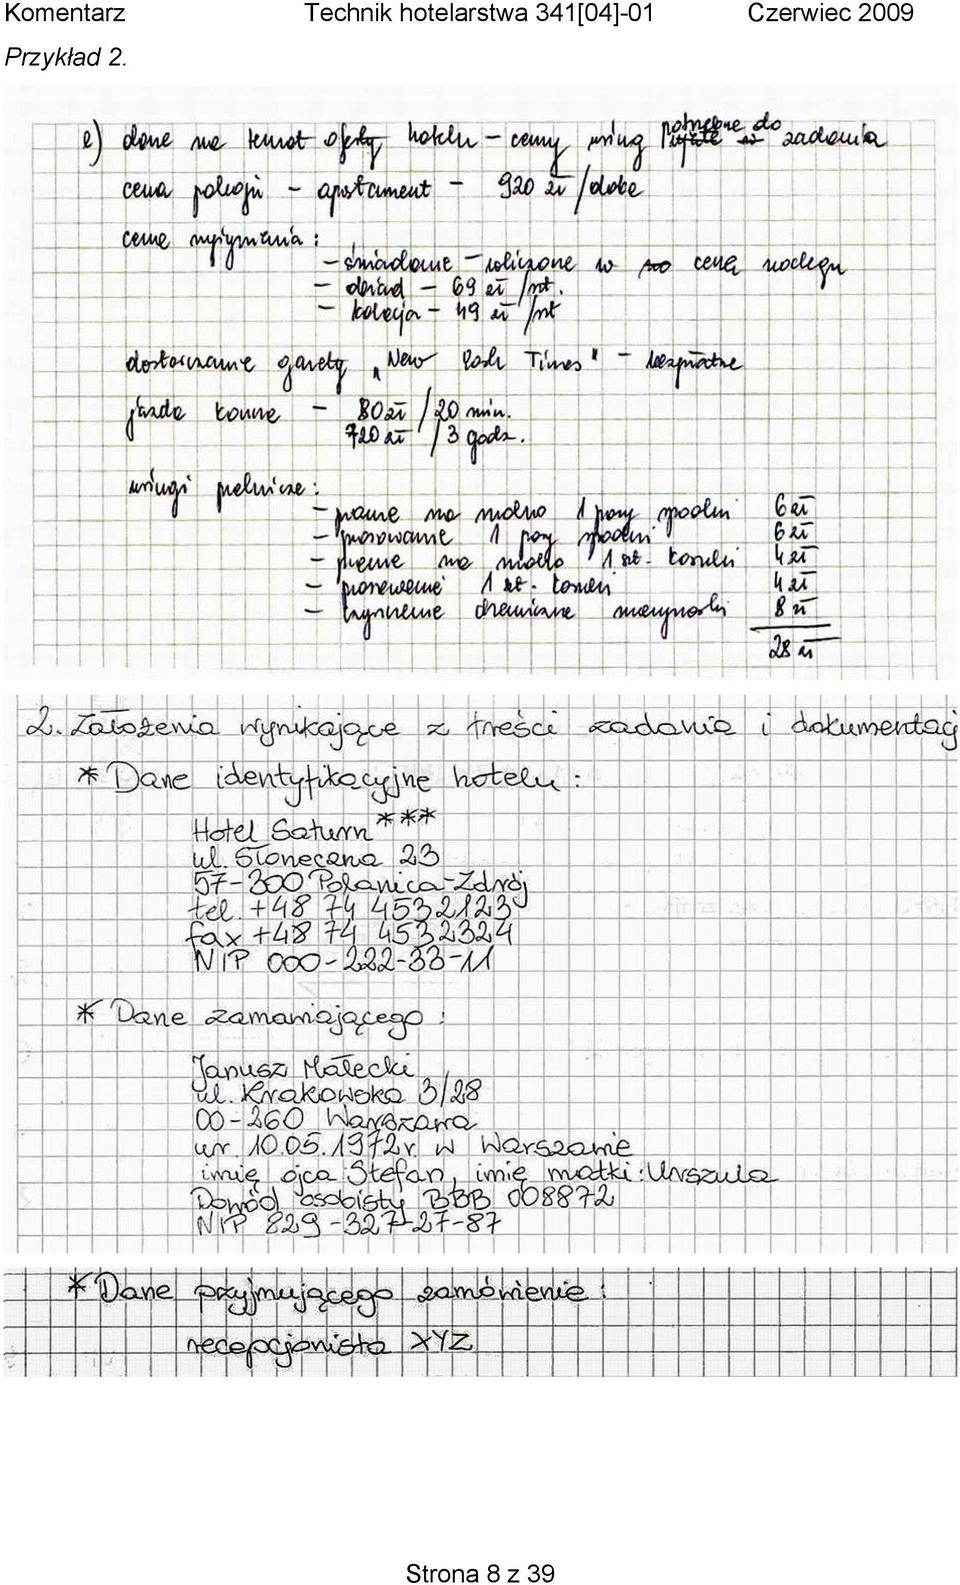 Komentarz Technik hotelarstwa 341[04]-01 Czerwiec 2009
Przykład 2.
e) dane na temat oferty hotelu - ceny usług potrzebne do zadania
cena pokoju - apartament - 920 zł/dobę
cena wyżywienia:
- śniadanie - wliczone w cenę noclegu
- obiad - 69 zł/szt.
- kolacja - 49 zł/szt
dostarczanie gazety „New York Times" - bezpłatne
jazda konna - 80 zł/20 min.
720 zł/3 godz.
usługi pralnicze:
- pranie na mokro 1 pary spodni 6 zł
- prasowanie 1 pary spodni 6 zł
- pranie na mokro 1 szt. koszuli 4 zł
- prasowanie 1 szt. koszuli 4 zł
- czyszczenie chemiczne marynarki 8 zł
28 zł
2. Założenia wynikające z treści zadania i dokumentacj
* Dane identyfikacyjne hotelu:
Hotel Saturn***
ul. Słoneczna 23
57-300 Polanica-Zdrój
tel. +48 74 4532123
fax +48 74 4532324
NIP 000-222-33-11
* Dane zamawiającego:
Janusz Małecki
ul. Krakowska 3/28
00-260 Warszawa
ur. 10.05.1972r. w Warszawie
imię ojca Stefan, imię matki: Urszula
Dowód osobisty BBB 008872
NIP 829-327-27-87
* Dane przyjmującego zamówienie:
recepcjonista XYZ
Strona 8 z 39